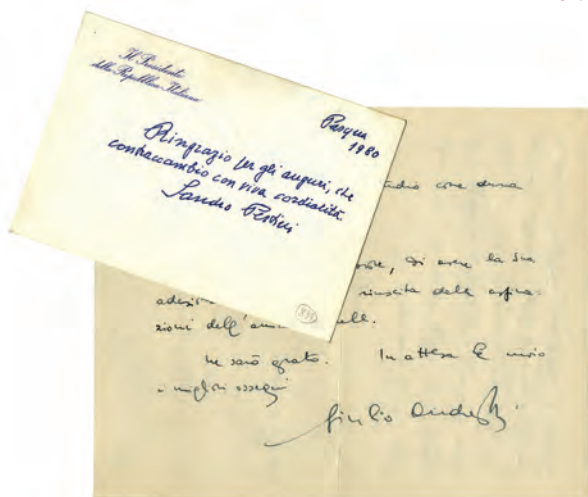 Il Presidente
della Repubblica Italiana
Pasqua
1980
Ringrazio per gli auguri, che
contraccambio con viva cordialità.
Sandro Pertini
XVI
studio come
di avere la Sua
riuscita delle aspira-
zioni dell'
ne sarò grato. In attesa le invio
i migliori ossequi
Giulio Andreotti